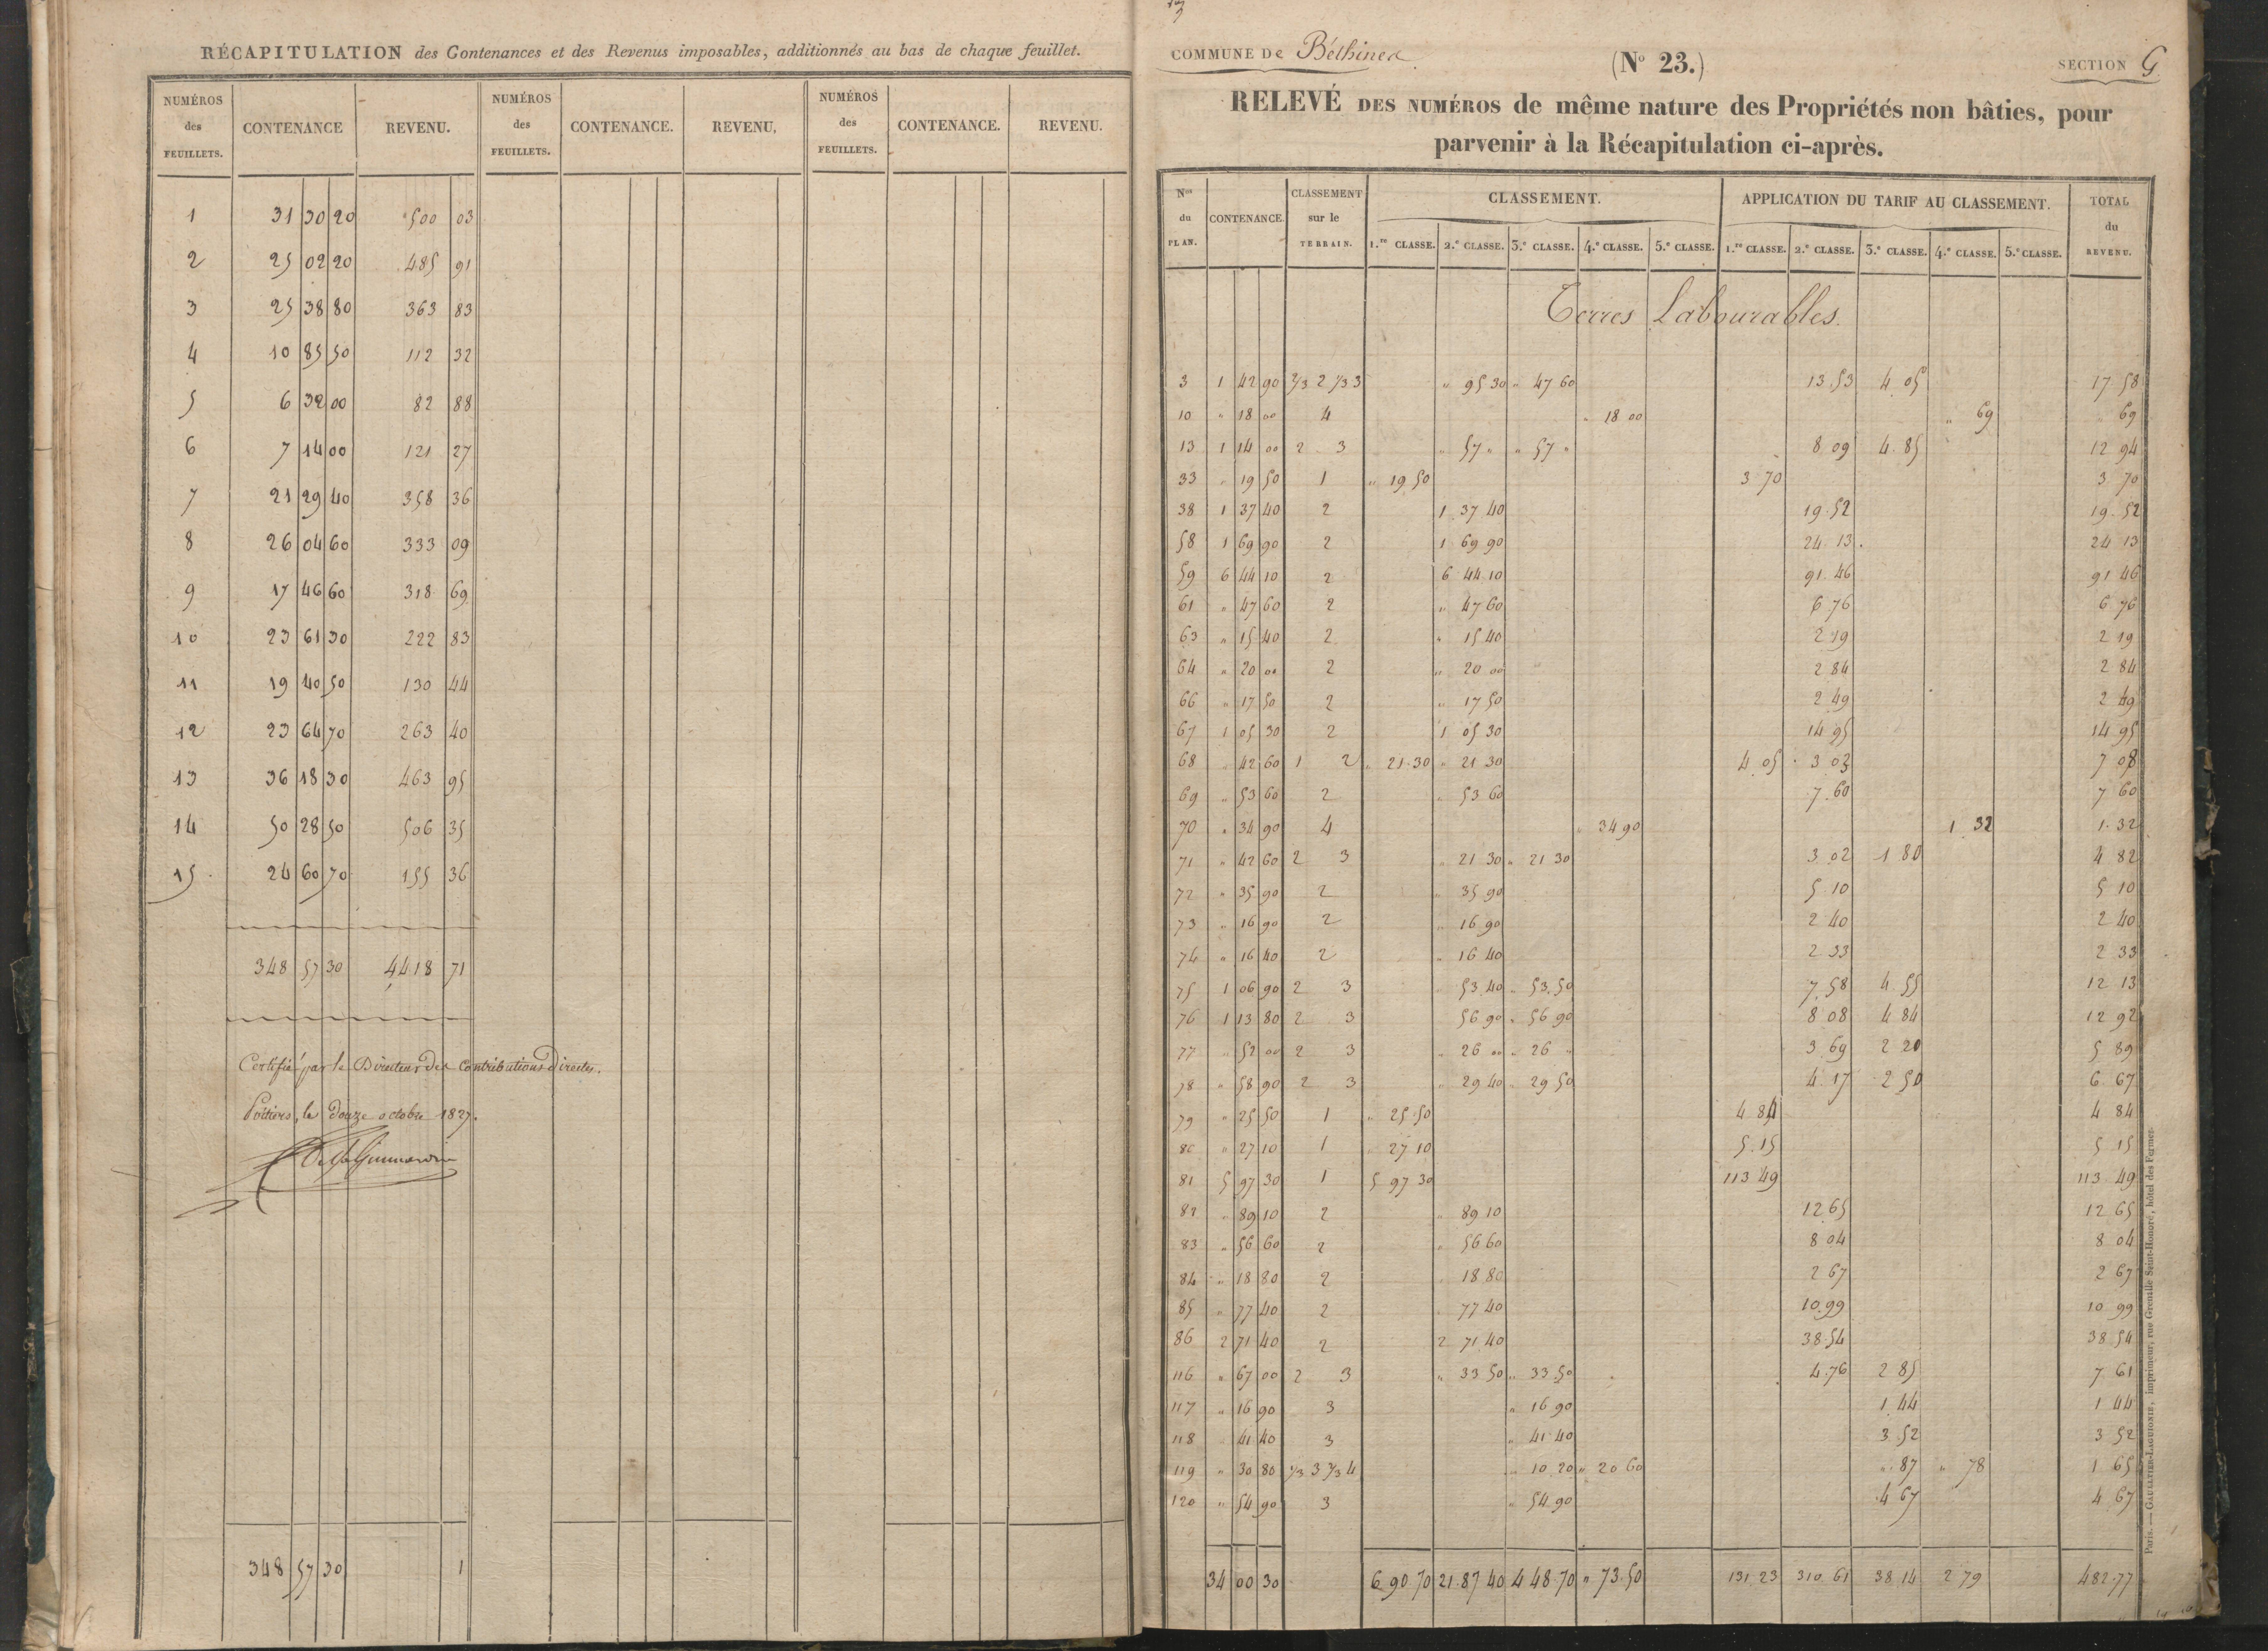 RÉCAPITULATION des Contenances et des Revenus imposables, additionnés au bas de chaque feuillet.
NUMÉROS des FEUILLETS. CONTENANCE REVENU. NUMÉROS des FEUILLETS. CONTENANCE. REVENU. NUMÉROS des FEUILLETS. CONTENANCE. REVENU.
1 31 30 20 500 03
2 25 02 20 485 91
3 25 38 80 363 83
4 10 85 50 112 32
5 6 32 00 82 88
6 7 14 00 121 27
7 21 29 40 358 36
8 26 04 60 333 09
9 17 46 60 318 69
10 23 61 30 222 83
11 19 40 50 130 44
12 23 64 70 263 40
13 36 18 30 463 95
14 50 28 50 506 35
15 24 60 70 155 36
348 57 30 4418 71
Certifié par le Directeur des Contributions Directes.
Poitiers, le douze octobre 1827.
348 57 30 1
COMMUNE De Béthines
(No 23.)
SECTION G.
RELEVÉ DES NUMÉROS de même nature des Propriétés non bâties, pour
parvenir à la Récapitulation ci-après.
Nos du PLAN. CONTENANCE. CLASSEMENT sur le TERRAIN. CLASSEMENT. APPLICATION DU TARIF AU CLASSEMENT. TOTAL du REVENU.
1.re CLASSE. 2.e CLASSE. 3.e CLASSE. 4.e CLASSE. 5.e CLASSE. 1.re CLASSE. 2.e CLASSE. 3.e CLASSE. 4.e CLASSE. 5.e CLASSE.
Terres Labourables.
3 1 42 90 2/3 2 1/3 3 " 95 30 " 47 60 13.53 4.05 17.58
10 " 18 00 4 " 18 00 " 69 " 69
13 1 14 00 2 3 " 57 " " 57 " 8.09 4.85 12 94
33 " 19 50 1 " 19 50 3.70 3 70
38 1 37 40 2 1 37 40 19.52 19.52
58 1 69 90 2 1 69 90 24.13 24 13
59 6 44 10 2 6 44 10 91.46 91 46
61 " 47 60 2 " 47 60 6.76 6 76
63 " 15 40 2 " 15 40 2 19 2 19
64 " 20 00 2 " 20 00 2 84 2 84
66 " 17 50 2 " 17 50 2 49 2 49
67 1 05 30 2 1 05 30 14 95 14 95
68 " 42 60 1 2 " 21.30 " 21 30 4.05 3 03 7 08
69 " 53 60 2 " 53 60 7.60 7 60
70 " 34 90 4 " 34 90 1.32 1.32
71 " 42 60 2 3 " 21 30 " 21 30 3.02 1 80 4 82
72 " 35 90 2 " 35 90 5.10 5 10
73 " 16 90 2 " 16 90 2 40 2 40
74 " 16 40 2 " 16 40 2 33 2 33
75 1 06 90 2 3 " 53 40 " 53.50 7.58 4 55 12 13
76 1 13 80 2 3 56 90 " 56 90 8 08 4 84 12 92
77 " 52 00 2 3 " 26 00 " 26 " 3 69 2 20 5 89
78 " 58 90 2 3 " 29 40 " 29 50 4.17 2 50 6 67
79 " 25 50 1 " 25.50 4 84 4 84
80 " 27 10 1 " 27 10 5.15 5 15
81 5 97 30 1 5 97 30 113 49 113 49
82 " 89 10 2 " 89 10 12.65 12 65
83 " 56 60 2 " 56 60 8 04 8 04
84 " 18 80 2 " 18 80 2 67 2 67
85 " 77 40 2 " 77 40 10.99 10 99
86 2 71 40 2 2 71 40 38.54 38 54
116 " 67 00 2 3 " 33 50 " 33.50 4.76 2 85 7 61
117 " 16 90 3 " 16 90 1 44 1 44
118 41 40 3 " 41 40 3.52 3 52
119 " 30 80 1/3 3 2/3 4 " 10 20 " 20 60 " 87 " 78 1 65
120 " 54 90 3 " 54 90 4 67 4 67
34 00 30 6 90 70 21.87 40 4 48 70 " 73.50 131.23 310.61 38.14 2 79 482.77
Paris. — GAULTIER-LAGUIONIE, imprimeur, rue Grenelle Saint-Honoré, hôtel des Fermes.